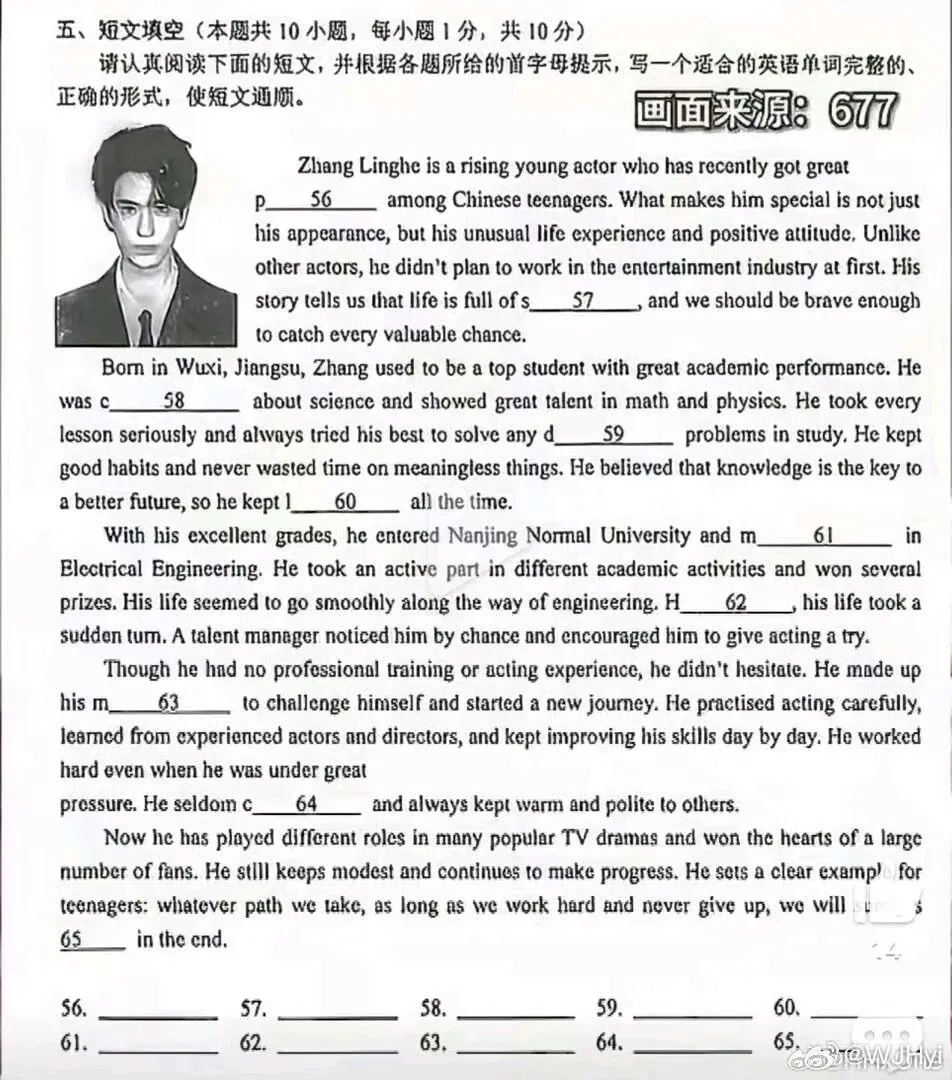 五、短文填空（本题共 10 小题，每小题 1 分，共 10 分）
请认真阅读下面的短文，并根据各题所给的首字母提示，写一个适合的英语单词完整的、
正确的形式，使短文通顺。
画面来源：677
Zhang Linghe is a rising young actor who has recently got great
p 56 among Chinese teenagers. What makes him special is not just
his appearance, but his unusual life experience and positive attitude. Unlike
other actors, he didn't plan to work in the entertainment industry at first. His
story tells us that life is full of s 57 , and we should be brave enough
to catch every valuable chance.
Born in Wuxi, Jiangsu, Zhang used to be a top student with great academic performance. He
was c 58 about science and showed great talent in math and physics. He took every
lesson seriously and always tried his best to solve any d 59 problems in study. He kept
good habits and never wasted time on meaningless things. He believed that knowledge is the key to
a better future, so he kept l 60 all the time.
With his excellent grades, he entered Nanjing Normal University and m 61 in
Electrical Engineering. He took an active part in different academic activities and won several
prizes. His life seemed to go smoothly along the way of engineering. H 62 , his life took a
sudden turn. A talent manager noticed him by chance and encouraged him to give acting a try.
Though he had no professional training or acting experience, he didn't hesitate. He made up
his m 63 to challenge himself and started a new journey. He practised acting carefully,
learned from experienced actors and directors, and kept improving his skills day by day. He worked
hard even when he was under great
pressure. He seldom c 64 and always kept warm and polite to others.
Now he has played different roles in many popular TV dramas and won the hearts of a large
number of fans. He still keeps modest and continues to make progress. He sets a clear example for
teenagers: whatever path we take, as long as we work hard and never give up, we will
65 in the end.
14
56. 57. 58. 59. 60.
61. 62. 63. 64. 65.